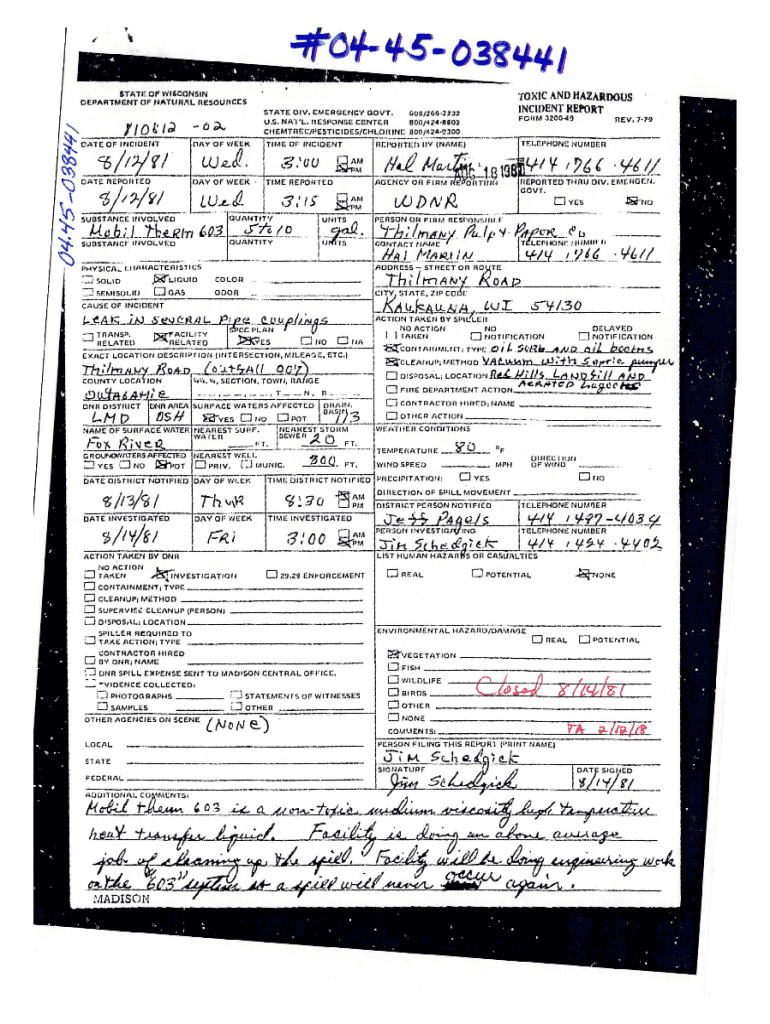 #04-45-038441
04-45-038441
STATE OF WISCONSIN
DEPARTMENT OF NATURAL RESOURCES
810812 -02
STATE DIV. EMERGENCY GOVT. 608/266-3232
U.S. NAT'L. RESPONSE CENTER 800/424-8802
CHEMTREC/PESTICIDES/CHLORINE 800/424-9300
TOXIC AND HAZARDOUS
INCIDENT REPORT
FORM 3200-49 REV. 7-79
DATE OF INCIDENT DAY OF WEEK TIME OF INCIDENT REPORTED BY (NAME) TELEPHONE NUMBER
8/12/81 Wed. 3:00 AM PM Hal Martin AUG 18 1981 414 766-4611
DATE REPORTED DAY OF WEEK TIME REPORTED AGENCY OR FIRM REPORTING REPORTED THRU DIV. EMERGEN. GOVT.
8/12/81 Wed 3:15 AM PM WDNR YES NO
SUBSTANCE INVOLVED QUANTITY UNITS PERSON OR FIRM RESPONSIBLE
Mobil therm 603 5 to 10 gal. Thilmany Pulp & Paper Co
SUBSTANCE INVOLVED QUANTITY UNITS CONTACT NAME TELEPHONE NUMBER
HAL MARTIN 414 766-4611
PHYSICAL CHARACTERISTICS ADDRESS – STREET OR ROUTE
SOLID LIQUID COLOR Thilmany ROAD
SEMISOLID GAS ODOR CITY, STATE, ZIP CODE
CAUSE OF INCIDENT KAUKAUNA, WI 54130
LEAK IN SEVERAL Pipe couplings ACTION TAKEN BY SPILLER
TRANSP. RELATED FACILITY RELATED SPCC PLAN YES NO NA NO ACTION TAKEN NO NOTIFICATION DELAYED NOTIFICATION
EXACT LOCATION DESCRIPTION (INTERSECTION, MILEAGE, ETC.) CONTAINMENT; TYPE oil sorb AND oil booms
Thilmany ROAD (outfall 007) CLEANUP; METHOD VACUUM with Septic pumper
COUNTY LOCATION ¼¼, ¼, SECTION, TOWN, RANGE DISPOSAL; LOCATION Red Hills LANDfill AND
Outagamie T N, R FIRE DEPARTMENT ACTION AERATED Lagoons
DNR DISTRICT DNR AREA SURFACE WATERS AFFECTED DRAIN. BASIN CONTRACTOR HIRED; NAME
LMD OSH YES NO POT 113 OTHER ACTION
NAME OF SURFACE WATER NEAREST SURF. WATER NEAREST STORM SEWER WEATHER CONDITIONS
Fox River FT. 20 FT. TEMPERATURE 80 °F
GROUNDWATERS AFFECTED NEAREST WELL WIND SPEED MPH DIRECTION OF WIND
YES NO POT PRIV. MUNIC. 300 FT.
DATE DISTRICT NOTIFIED DAY OF WEEK TIME DISTRICT NOTIFIED PRECIPITATION: YES NO
8/13/81 Thur 8:30 AM PM DIRECTION OF SPILL MOVEMENT
DISTRICT PERSON NOTIFIED TELEPHONE NUMBER
DATE INVESTIGATED DAY OF WEEK TIME INVESTIGATED Jeff Pagels 414 497-4034
8/14/81 FRI 3:00 AM PM PERSON INVESTIGATING TELEPHONE NUMBER
Jim Schedgick 414 424-4402
ACTION TAKEN BY DNR LIST HUMAN HAZARDS OR CASUALTIES
NO ACTION TAKEN INVESTIGATION 29.29 ENFORCEMENT REAL POTENTIAL NONE
CONTAINMENT; TYPE
CLEANUP; METHOD
SUPERVISE CLEANUP (PERSON)
DISPOSAL; LOCATION
SPILLER REQUIRED TO TAKE ACTION; TYPE ENVIRONMENTAL HAZARD/DAMAGE
REAL POTENTIAL
CONTRACTOR HIRED BY DNR; NAME VEGETATION
DNR SPILL EXPENSE SENT TO MADISON CENTRAL OFFICE. FISH
EVIDENCE COLLECTED: WILDLIFE
PHOTOGRAPHS STATEMENTS OF WITNESSES BIRDS Closed 8/14/81
SAMPLES OTHER OTHER
OTHER AGENCIES ON SCENE (NONE) NONE
COMMENTS: TA 2/12/18
LOCAL PERSON FILING THIS REPORT (PRINT NAME)
STATE JIM Schedgick
FEDERAL SIGNATURE DATE SIGNED
Jim Schedgick 8/14/81
ADDITIONAL COMMENTS:
Mobil therm 603 is a non-toxic medium viscosity high temperature
heat transfer liquid. Facility is doing an above average
job of cleaning up the spill. Facility will be doing engineering work
on the "603" system so a spill will never occur again.
MADISON